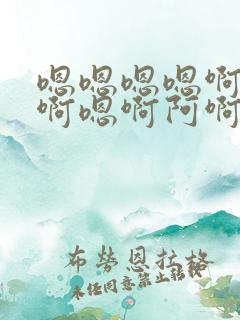 嗯嗯嗯嗯啊
啊嗯啊阿啊
布劳恩拉格
未经同意禁止转载